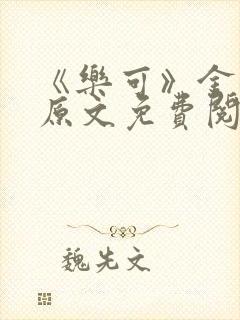 《樂可》全
原文免費閱
魏先文